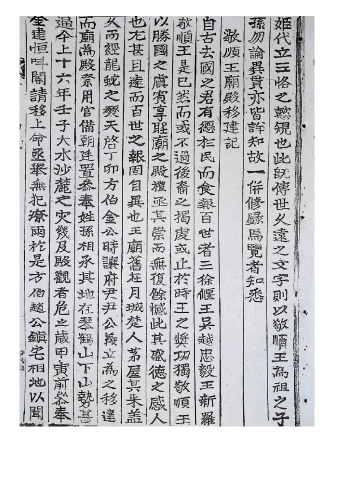 姬代立三恪之䂓規也此既傳世久遠之文字則以敬順王爲祖之子
孫勿論異貫亦皆詳知故一併修錄爲覽者知悉
敬順王廟殿移建記
自古去國之君有德於民而食報百世者三徐偃王吳越忠懿王新羅
敬順王是已然而或不過後裔之揭虔或止於時王之奬功獨敬順王
以勝國之虞賓享聖廟之殿禮亟其崇而無復餘憾此其盛德之感人
也尤甚且遠而百世之報固自異也王廟舊在月城楚人茅屋其來盖
久而經龍蛇之變天啓丁卯方伯金公時讓府尹尹公㻐立爲之移建
而廟爲殿祭用官備朝廷置叅奉姓孫相承其地在琴鶴山下山勢甚
逼今上十六年壬子大水沙麓之灾幾及殿觀者危之越甲寅前叅奉
金建恒叫閽請移上命亟擧無犯潦雨於是方伯趙公鎭宅相地以聞